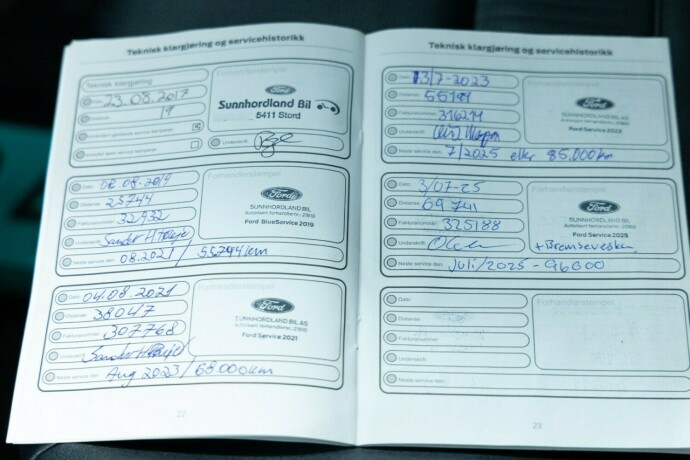 Teknisk klargjøring og servicehistorikk
Teknisk klargjøring
Forhandlerstempel
Dato: 23.08.2017
Distanse: 19
Ford
Sunnhordland Bil
5411 Stord
Underskrift:
Dato: 08.2019
Distanse: 25744
32432
Underskrift: Sander H
Neste service den: 08.2021 / 55744 km
Forhandlerstempel
Ford
SUNNHORDLAND BIL
Autorisert forhandlernr.: 21819
Ford BlueService 2019
Dato: 04.08.2021
Distanse: 38047
Fakturanummer: 307768
Underskrift: Sander H
Neste service den: Aug 2023 / 68000km
Forhandlerstempel
Ford
SUNNHORDLAND BIL AS
Ford Service 2021
22
Teknisk klargjøring og servicehistorikk
Dato: 13/7-2023
Distanse:
Fakturanummer: 316274
Underskrift:
Neste service den: 7/2025 eller 85.000km
Forhandlerstempel
Ford
SUNNHORDLAND BIL AS
Ford Service 2023
Dato: 3/07-25
Distanse: 69741
Fakturanummer: 325188
Underskrift:
Neste service den: Juli/2025 -
Ford
SUNNHORDLAND BIL AS
Ford Service 2025
+Bremsevesken
Dato:
Distanse:
Fakturanummer:
Underskrift:
Neste service den:
Forhandlerstempel
23